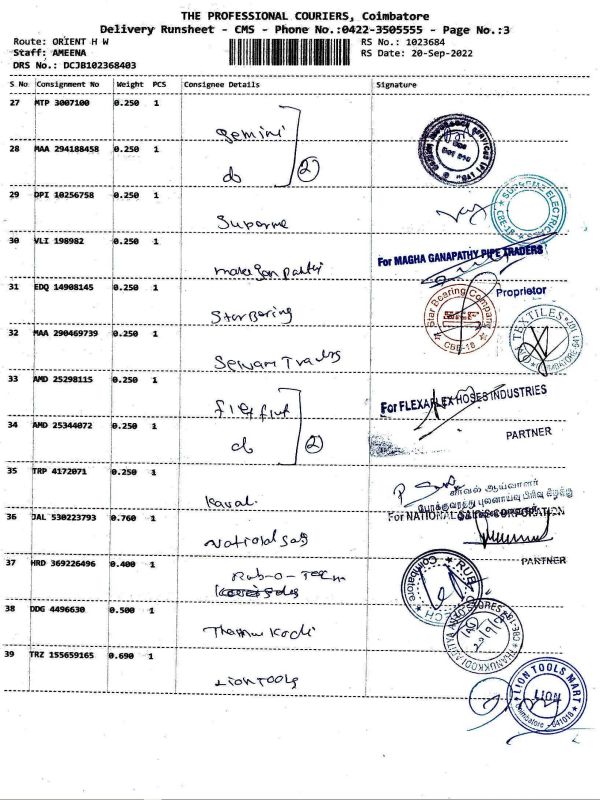 THE PROFESSIONAL COURIERS, Coimbatore
Delivery Runsheet - CMS - Phone No.:0422-3505555 - Page No.:3
Route: ORIENT H W
Staff: AMEENA
DRS No.: DCJB102368403
RS No.: 1023684
RS Date: 20-Sep-2022
S No Consignment No Weight PCS Consignee Details Signature
27 MTP 3007100 0.250 1 gemini
28 MAA 294188458 0.250 1 do 2
29 DPI 10256758 0.250 1 Superme
SUPREME ELECTRIC
CBE-18
30 VLI 198982 0.250 1
For MAGHA GANAPATHY PIPE TRADERS
Proprietor
31 EDQ 14908145 0.250 1 Star Boring
Star Bearing Company
CBE-18
32 MAA 290469739 0.250 1 Selvam Traders
TEXTILES
COIMBATORE
33 AMD 25298115 0.250 1
For FLEXAFLEX HOSES INDUSTRIES
34 AMD 25344072 0.250 1 do 2
PARTNER
35 TRP 4172071 0.250 1 Kaval
காவல் ஆய்வாளர்
போக்குவரத்து புலனாய்வு பிரிவு கிழக்கு
36 JAL 530223793 0.760 1 National Sag
For NATIONAL SALES CORPORATION
PARTNER
37 HRD 369226496 0.400 1 Rub-O-Teem
Coimbatore
RUB
38 DDG 4496630 0.500 1 Thannu Kodi
STORES
CBE-18
39 TRZ 155659165 0.690 1 Lion Tools
LION TOOLS MART
LION
Coimbatore - 641018